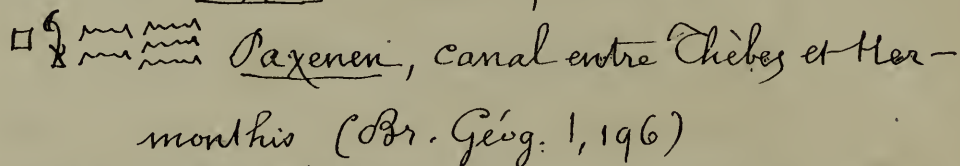 Paxenen, canal entre Thèbes et Her-
monthis (Br. Géog. 1, 196)